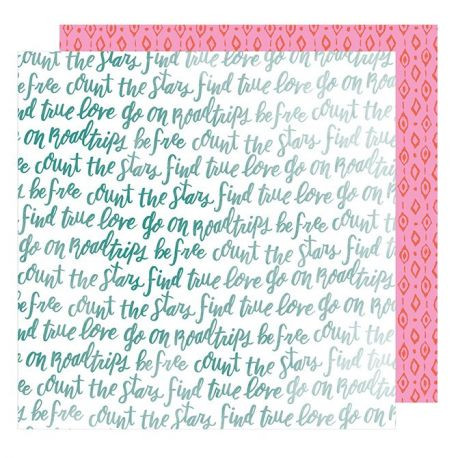 count the stars find true love go on
be free count the stars find true love go
go on Roadtrips be free count the stars find
be free count the stars find true love go on
go on Roadtrips be free count the stars find
be free count the stars find true love go on Roadtrips
find true love go on Roadtrips be free count
go on Roadtrips be free count the stars find
count the stars find true love go on Road
find true love go on Roadtrips be free count
go on Roadtrips be free count the stars
count the stars find true love go on Road
find true love go on Roadtrips be free
on Roadtrips be free count the stars find
count the stars find true love go on Roadtrips
find true love go on Roadtrips be free